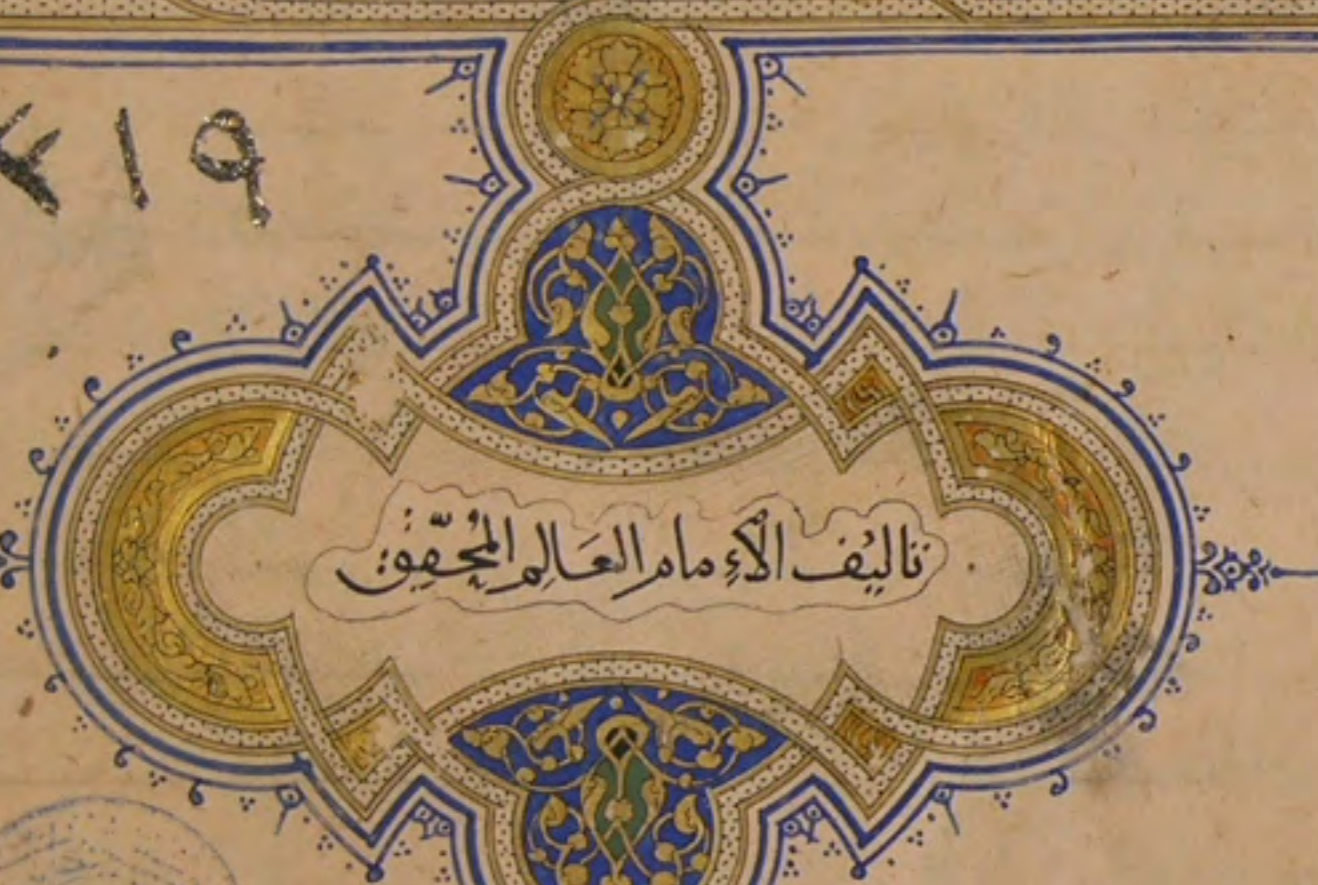 ٤١٩
تاليف الإمام العالم المحقق